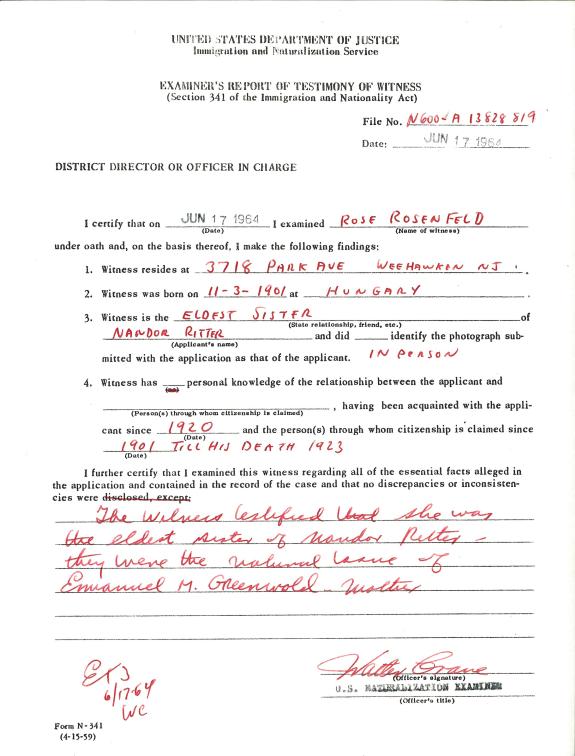 UNITED STATES DEPARTMENT OF JUSTICE
Immigration and Naturalization Service
EXAMINER'S REPORT OF TESTIMONY OF WITNESS
(Section 341 of the Immigration and Nationality Act)
File No. N600-A 13828 819
Date: JUN 17 1964
DISTRICT DIRECTOR OR OFFICER IN CHARGE
I certify that on JUN 17 1964 I examined ROSE ROSENFELD
(Date) (Name of witness)
under oath and, on the basis thereof, I make the following findings:
1. Witness resides at 3718 PARK AVE WEEHAWKEN NJ.
2. Witness was born on 11-3-1901 at HUNGARY
3. Witness is the ELDEST SISTER of
(State relationship, friend, etc.)
NANDOR RITTER and did identify the photograph sub-
(Applicant's name)
mitted with the application as that of the applicant. IN PERSON
4. Witness has personal knowledge of the relationship between the applicant and
(no)
, having been acquainted with the appli-
(Person(s) through whom citizenship is claimed)
cant since 1920 and the person(s) through whom citizenship is claimed since
(Date)
1901 TILL HIS DEATH 1923
(Date)
I further certify that I examined this witness regarding all of the essential facts alleged in
the application and contained in the record of the case and that no discrepancies or inconsisten-
cies were disclosed, except:
The Witness testified that she was
the eldest sister of Nandor Ritter -
they were the natural issue of
Emanuel M. Greenwold - Mother
Walter Crane
(Officer's signature)
U.S. NATURALIZATION EXAMINER
(Officer's title)
EX 3
6/17-64
WC
Form N-341
(4-15-59)